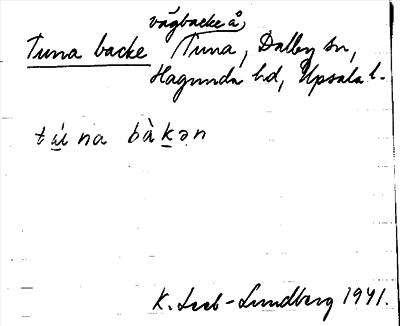 vägbacke å,
Tuna backe Tuna, Dalby sn,
Hagunda hd, Upsala l.
tú̱na bàḵən
K. Leeb-Lundberg 1941.